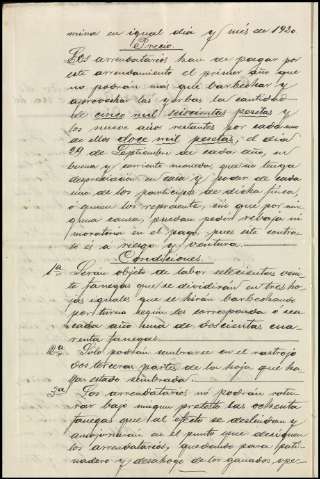 mina en igual dia y mes de 1930.
Precio.
Los arrendatarios han de pagar por
este arrendamiento el primer año que
no podran mas que barbechar y
aprovechar las yerbas la cantidad
de cinco mil seiscientas pesetas y
los nueve años restantes por cada uno
de ellos doce mil pesetas, el dia
29 de Septiembre de cada año, en
buena y corriente moneda que no tenga
depreciacion en casa y poder de cada
uno de los participes de dicha finca,
o quien los represente, sin que por nin
guna causa, puedan pedir rebaja ni
moratoria en el pago, pues este contra
to es a riesgo y ventura.
Condiciones.
1ª Seran objeto de labor setecientas vein
te fanegas que se dividiran en tres ho
jas iguales que se hiran barbechando
por turno segun les corresponda o sea
cada año una de doscientas cua
renta fanegas.
2ª Solo podran sembrarse en el rastrojo
dos terceras partes de la hoja que ha
ya estado sembrada.
3ª Los arrendatarios no podran rotu
rar bajo ningun pretesto las ochenta
fanegas que al efecto se deslindan y
amojonaran en el punto que designen
los arrendatarios, quedando para pasti
nadero y desahogo de los ganados, spe-